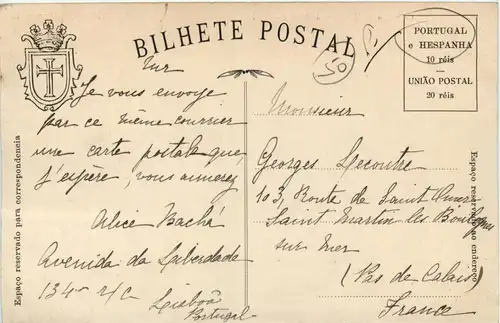 BILHETE POSTAL
PORTUGAL
e HESPANHA
10 réis
UNIÃO POSTAL
20 réis
50
Espaço reservado para correspondencia
Je vous envoye
par ce même courrier
une carte postale que,
j'espère, vous aimerez
Alice Baché
Avenida da Liberdade
134 r/c
Lisboa
Portugal
Monsieur
Georges Lecoutre
103, Route de Saint Omer
Saint Martin les Boulogne
sur mer
(Pas de Calais)
France
Espaço reservado ao endereço